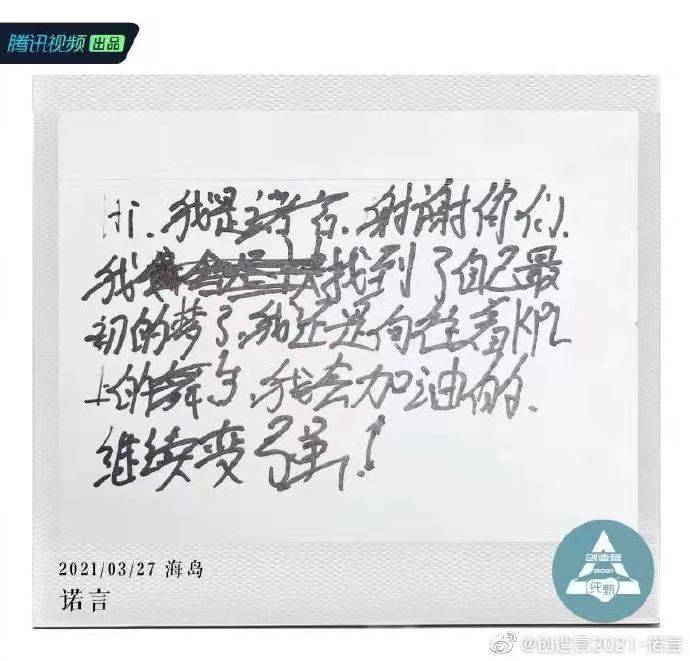 腾讯视频 出品
Hi、我是诺言、谢谢你们、
我找到了自己最
初的梦了,我还是向往着KPL
上的舞台,我会加油的、
继续变强!
2021/03/27 海岛
诺言
创造营
2021
纯甄
@创造营2021-诺言